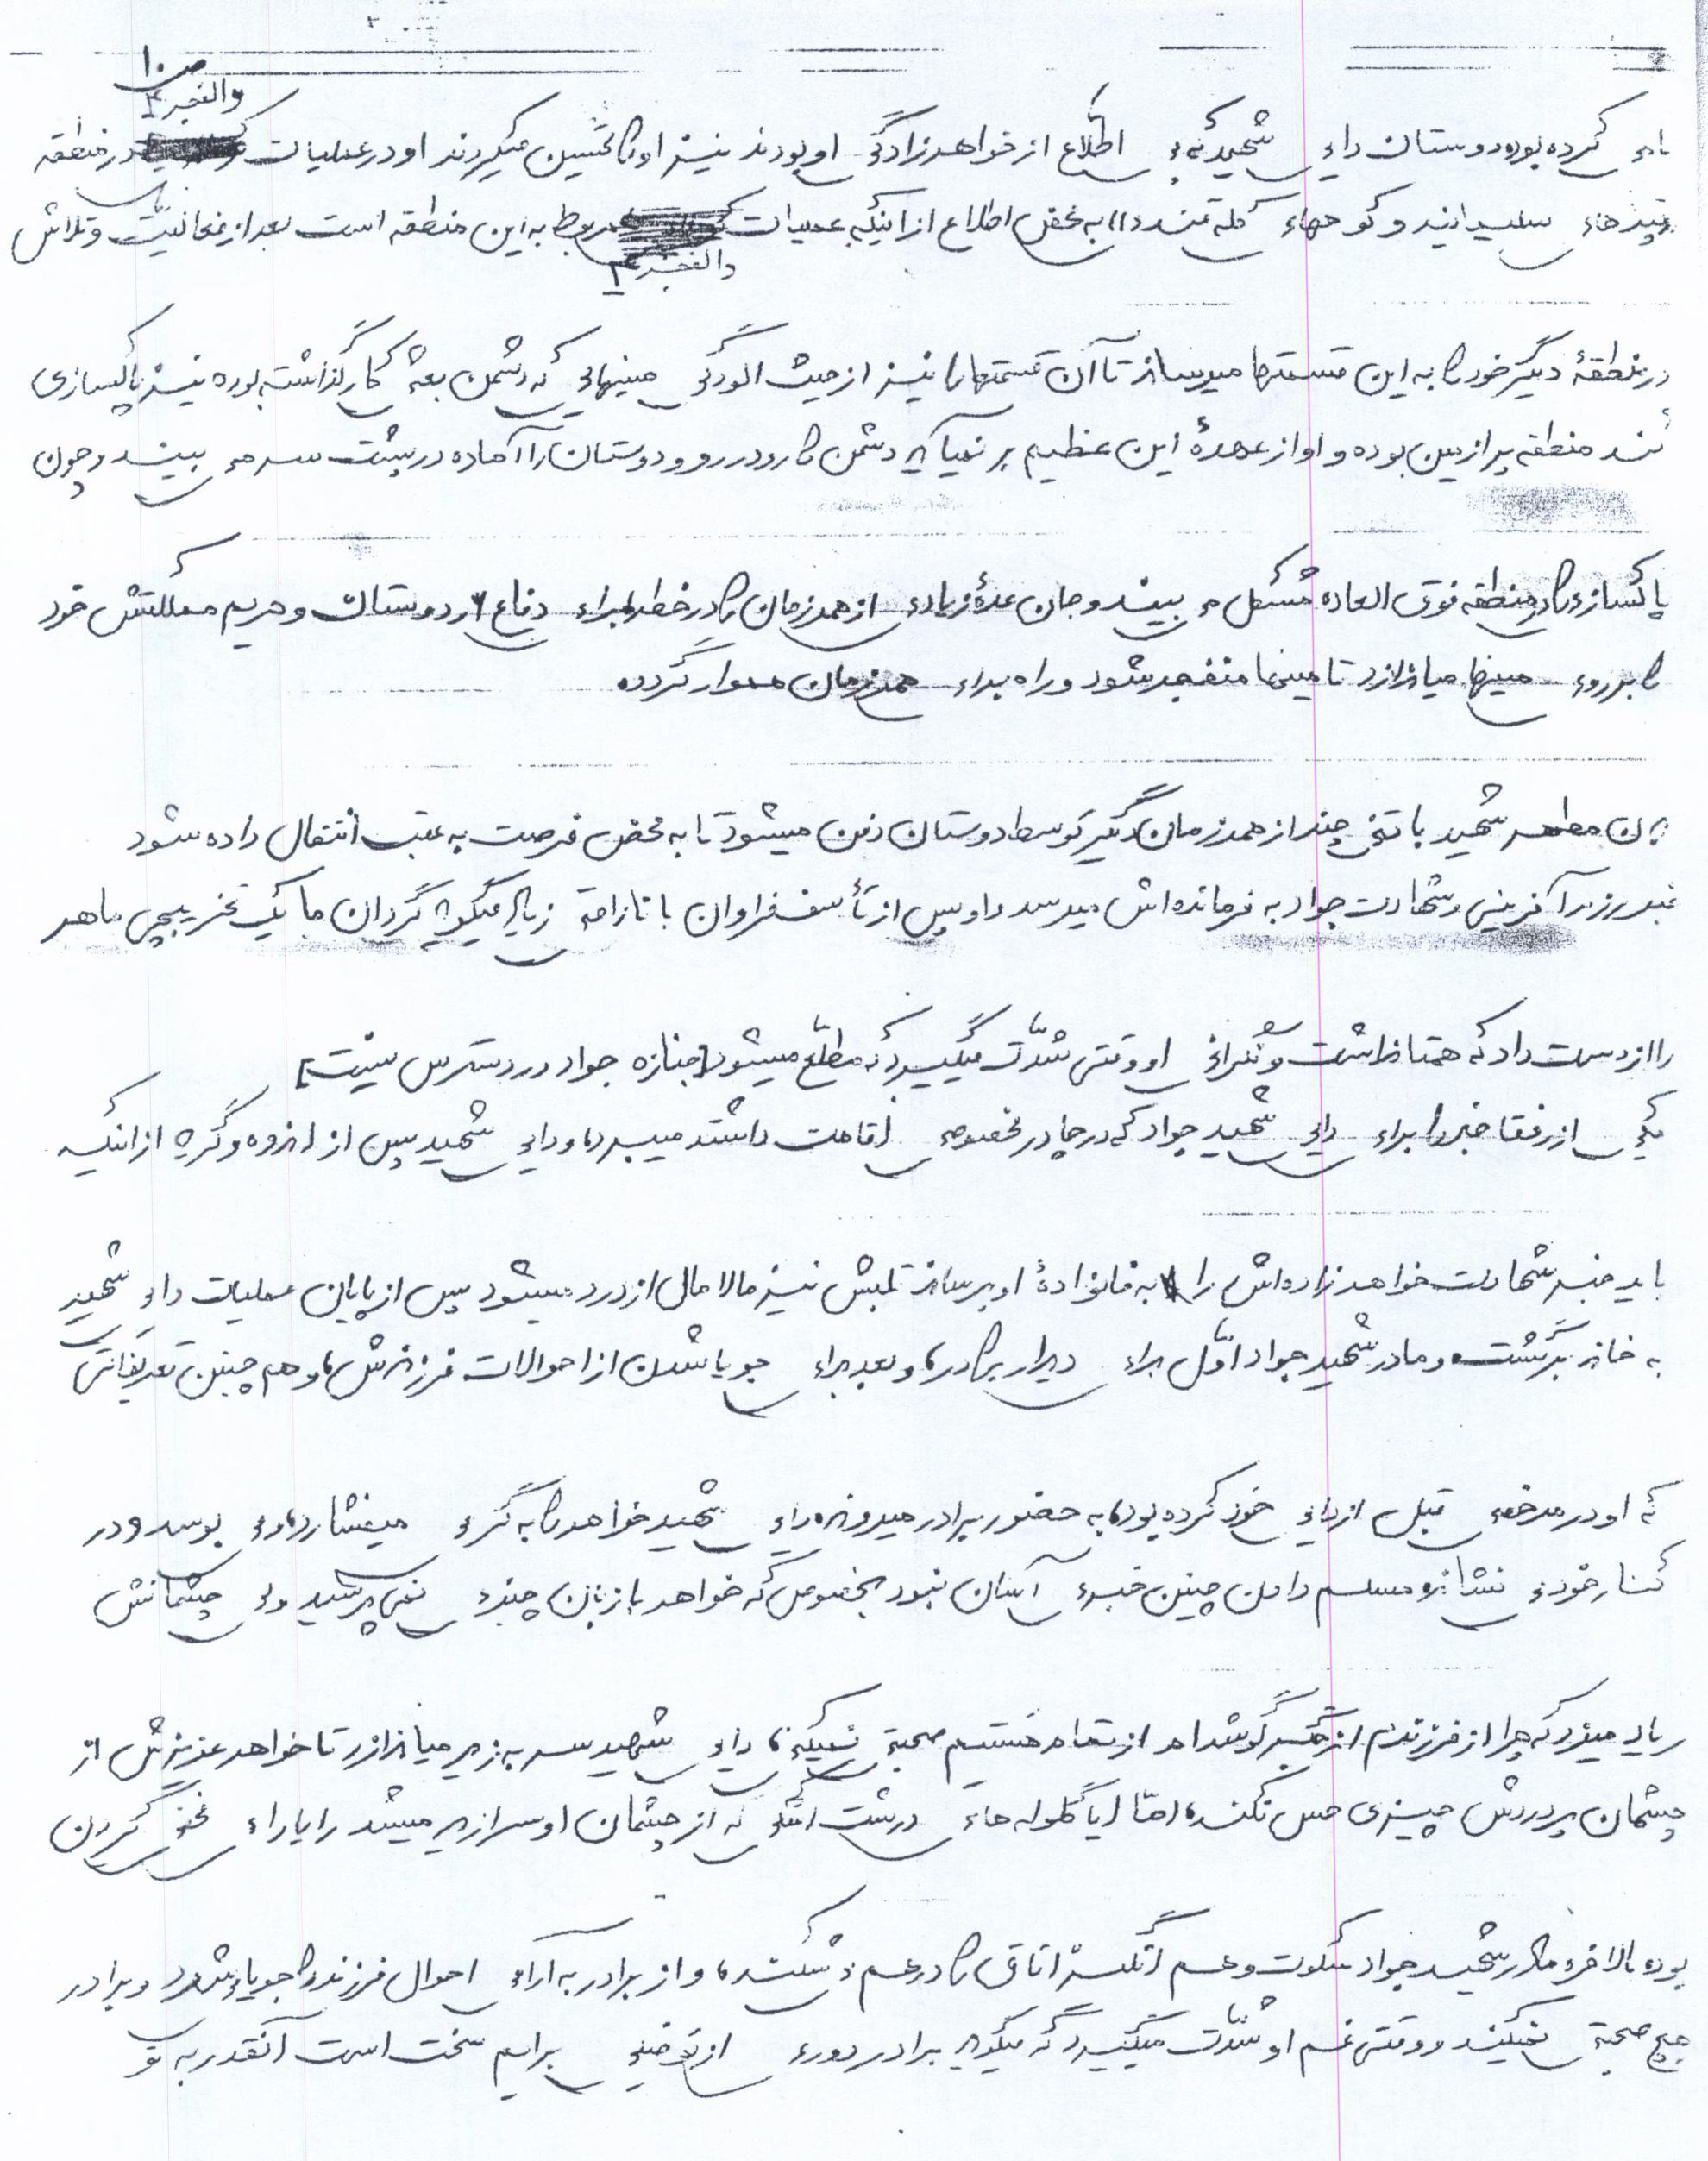 ص ۱۰
والفجر ۴
کرده بود دوستان دایی شهید که بی اطلاع از خواهرزادگی او بودند نیز او را تحسین میکردند او در عملیات در منطقه
سلیمانیه و کوههای کله قندی (( به محض اطلاع از اینکه عملیات مربوط به این منطقه است بعد از فعالیت و تلاش
والفجر ۴
در منطقهٔ دیگر خود را به این قسمتها میرساند تا آن قسمتها را نیز از حیث آلودگی مینهایی که دشمن بعثی کار گذاشته بوده نیز پاکسازی
کند منطقه پر از مین بوده و او از عهدهٔ این عظیم بر نمیآید دشمن را رودررو و دوستان را آماده در پشت سر می بیند و چون
پاکسازی را در منطقه فوق العاده مشکل می بیند و جان عدهٔ زیادی از همرزمان را در خطر برای دفاع از دوستان و حریم مملکتش خود
را بر روی مینها میاندازد تا مینها منفجر شود و راه برای همرزمان هموار گردد
بدن مطهر شهید با تنی چند از همرزمان دیگر توسط دوستان دفن میشود تا به محض فرصت به عقب انتقال داده شود
خبر رزم آفرینی و شهادت جواد به فرمانده اش میرسد و او پس از تأسف فراوان با ناراحتی زیاد میگوید گردان ما یک تخریبچی ماهر
را از دست داد که همتا نداشت و نگرانی او وقتی شدّت میگیرد که مطلّع میشود جنازه جواد در دسترس نیست
یکی از رفقا خبر را برای دایی شهید جواد که در چادر مخصوصی اقامت داشتند میبرد، و دایی شهید پس از اندوه و گریه از اینکه
باید خبر شهادت خواهرزاده اش را به خانوادهٔ او برساند قلبش نیز مالامال از درد میشود پس از پایان عملیات دایی شهید
به خانه برگشت و مادر شهید جواد اوّل برای دیدار برادر، و بعد برای جویا شدن از احوالات فرزندش، و همچنین تعریفاتی
که او در مرخصی قبل از دایی خود کرده بود، به حضور برادر میرود، دایی شهید خواهر را به گرمی میفشارد، می بوسد و در
کنار خود می نشاند، مسلم دادن چنین خبری آسان نبود بخصوص که خواهر با زبان چیزی نمی پرسید ولی چشمانش
فریاد میزد که چرا از فرزندم از جگرگوشه ام از تمام هستیم صحبتی نمیکنی، دایی شهید سر به زیر میاندازد تا خواهر عزیزش از
چشمان پر دردش چیزی حس نکند، امّا آیا گلوله های درشت اشکی که از چشمان او سرازیر میشد را یارای مخفی کردن
بود، بالاخره مادر شهید جواد سکوت و غم انگیز اتاق را در هم می شکند، و از برادر به آرامی احوال فرزند را جویا میشود و برادر
هیچ صحبتی نمیکند و وقتی غم او شدّت میگیرد که میگوید برادر دوری از تو خیلی برایم سخت است آنقدر به تو